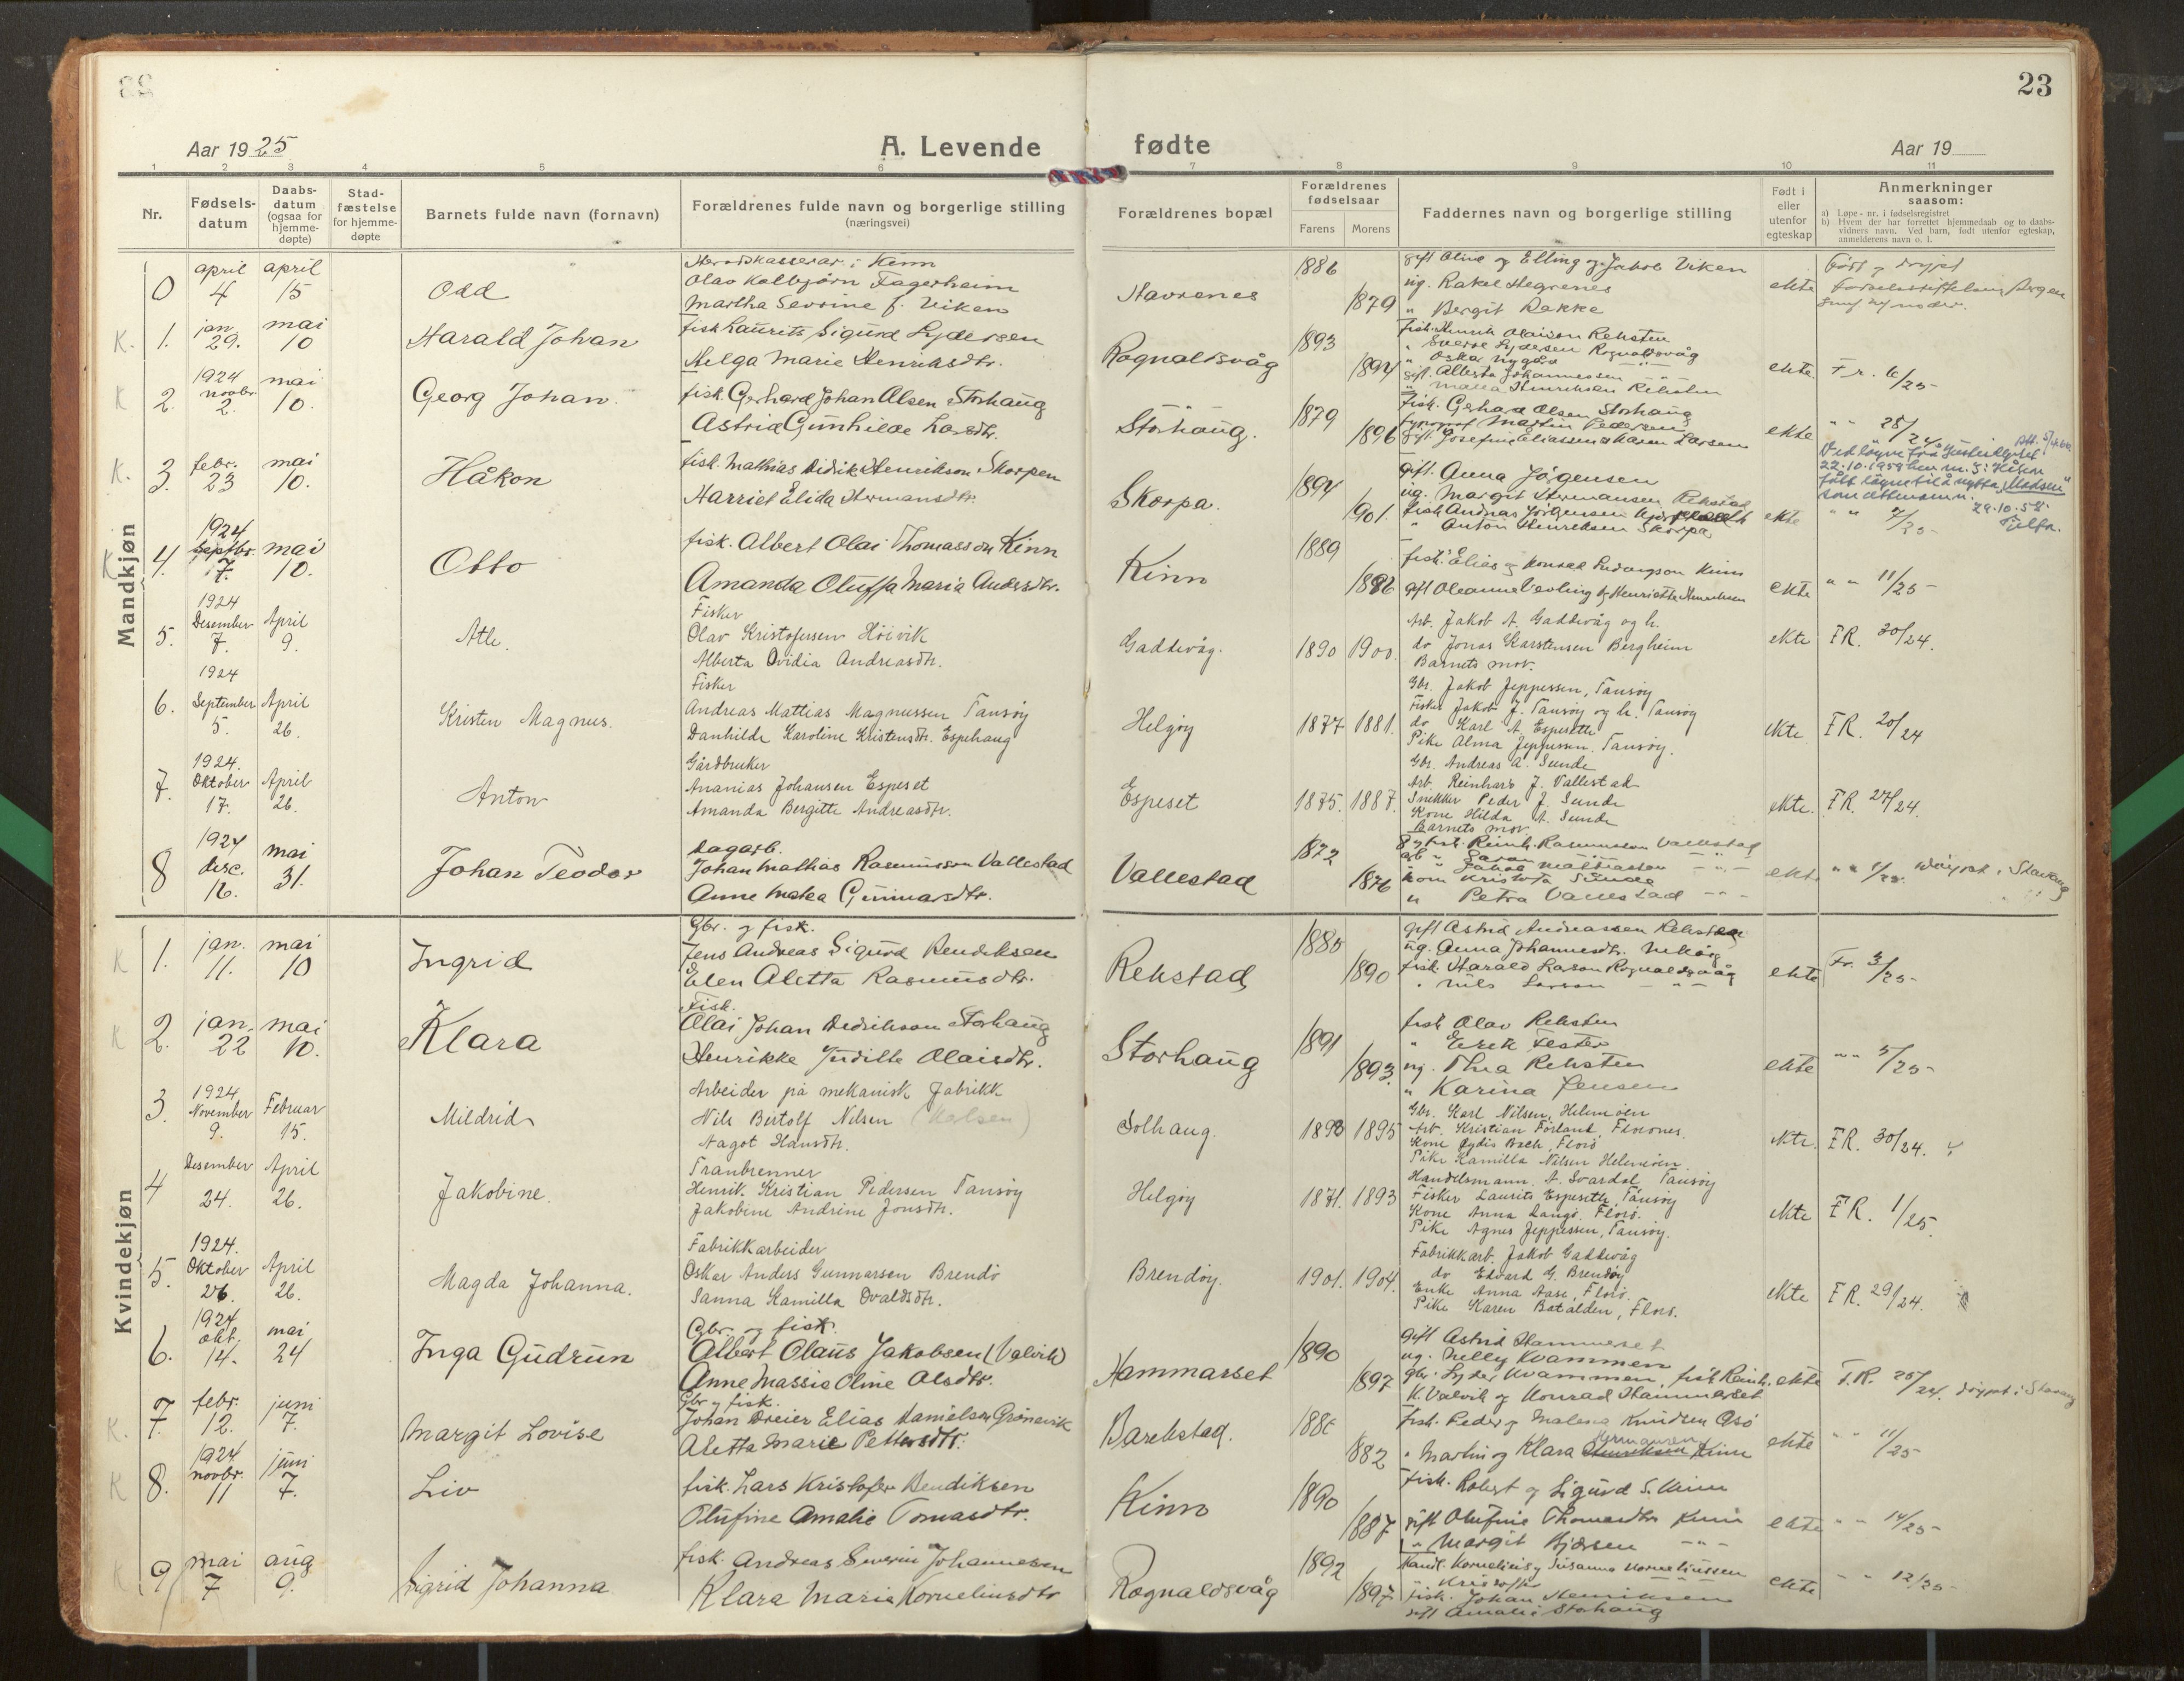 23
Aar 1925
A. Levende fødte
Aar 19
1 2 3 4 5 6 7 8 9 10 11
Nr.
Fødsels-
datum
Daabs-
datum
(ogsaa for
hjemme-
døpte)
Stad-
fæstelse
for hjemme-
døpte
Barnets fulde navn (fornavn)
Forældrenes fulde navn og borgerlige stilling
(næringsvei)
Forældrenes bopæl
Forældrenes
fødselsaar
Farens Morens
Faddernes navn og borgerlige stilling
Født i
eller
utenfor
egteskap
Anmerkninger
saasom:
a) Løpe-nr. i fødselsregistret
b) Hvem der har forrettet hjemmedaab og to daabs-
vidners navn. Ved barn, født utenfor egteskap,
anmelderens navn o. l.
Mandkjøn
0 april 4 april 15 Odd
Heradskasserar i Kinn
Olav Kolbjørn Fagerheim
Martha Sevrine f. Viken
Havrenes 1886 1879
gift Oline og Elling og Jakob Viken
ug. Rakel Hegrenes
" Bergit Bakke
ekte
K. 1. jan. 29. mai 10 Harald Johan
fisk Laurits Sigurd Lydersen
Helga Marie Henriksdtr.
Rognaldsvåg 1893 1894
fisk. Henrik Olaison Rehsten
" Sverre Lydersen Rognaldsvåg
" Oskar Nygård
gift. Alberta Johannessen
" Malla Henriksen Rehsten
ekte. F.r. 6/25
K 2. 1924 novbr. 2. mai 10. Georg Johan.
fisk. Gerhard Johan Olsen Storhaug
Astrid Gunhilde Larsdtr.
Storhaug. 1879 1896
fisk. Gerhard Olsen Storhaug
Martin Pedersen
gift. Josefine Eliassen & Karen Larsen
ekte " " 28/24
K. 3. febr. 23 mai 10. Håkon
fisk. Mathias Didrik Henrikson Skorpen
Harriet Elida Hermansdtr.
Skorpa. 1894 1901.
gift. Anna Jörgensen
ug. Margit Hermansen Rekstad
fisk Andreas Jörgensen
" Anton Henriksen Skorpa
ekte " " 7/25
22.10.1958
fått løyve til å nytta "Madsen"
som ettenamn.
29.10.58.
K 4. 1924 septbr. 7. mai 10. Otto
fisk. Albert Olai Thomasson Kinn
Amanda Oluffa Maria Andersdtr.
Kinn 1889 1886
fisk. Elias og Konrad Kinn
gift Oleanne og Henriette Henriksen
ekte " " 11/25
5. 1924 Desember 7. April 9. Atle.
Fisker
Olav Kristofersen Höivik
Alberta Ovidia Andreasdtr.
Gaddevåg. 1890 1900.
Arb. Jakob A. Gaddevåg og h.
do Jonas Karstensen Bergheim
Barnets mor.
ekte F.R. 30/24.
6. 1924 September 5. April 26. Kristen Magnus.
Fisker
Andreas Mattias Magnussen Tansøy
Danhilde Karoline Kristensdtr. Espehaug
Helgøy 1877 1881.
Gbr. Jakob Jeppessen, Tansøy
Fisker Jakob J. Tansøy og h. Tansøy
do Karl A. Espesette
Pike Alma Jeppessen. Tansøy.
ekte F.R. 20/24
7. 1924. Oktober 17. April 26. Anton
Gårdbruker
Ananias Johansen Espeset
Amanda Bergitte Andreasdtr.
Espeset 1875. 1887.
Gbr. Andreas A. Sunde
Arb. Reinhard J. Vallestad
Snekker Peder J. Sunde
Kone Hilda A. Sunde
Barnets mor.
ekte. F.R. 27/24.
8 1924 desc. 16. mai 31. Johan Teodor
Dagarb.
Johan Mathias Rasmusson Vallestad
Anne Matea Gunnarsdtr.
Vallestad 1872 1876
Reinh. Rasmusson Vallestad
Jakob Mathiassen
Kristofa Sunde
" Petra Vallestad
ekte
Kvindekjøn
K 1. jan. 11. mai 10 Ingrid
Gbr. og fisk.
Jens Andreas Sigurd Bendiksen
Elen Aletta Rasmusdtr.
Rekstad 1885 1890
gift Astrid Andreassen Rekstad
ug. Anna Johannesdtr.
fisk. Harald Larson Rognaldsvåg
" Nils Larson
ekte Fr. 3/25
K 2. jan. 22 mai 10. Klara
Fisk.
Olai Johan Dedrikson Storhaug
Henrikke Judithe Olaisdtr.
Storhaug 1891 1893.
fisk Olav Rehsten
" Eirik Tester
ug. Thea Rehsten
" Karina Jensen
ekte " " 5/25
3. 1924 November 9. Februar 15. Mildrid
Arbeider på mekanisk fabrikk
Nils Bertolf Nilsen (Karlsen)
Nagot Hansdtr.
Solhaug. 1893 1895
Gbr. Karl Nilsen, Helmøen
Arb. Kristian Förland, Florones.
Kone Lydis Bach, Florö
Pike Kamilla Nilsen Helmøen.
ekte. F.R. 30/24.
4 Desember 24. April 26. Jakobine.
Tranbrenner
Henrik Kristian Pedersen Tansøy
Jakobine Andrine Jonsdtr.
Helgøy 1871. 1893
Handelsmann. A. Svardal Tansøy
Fisker Laurits Espesette, Tansøy
Kone Anna Langö. Florö.
Pike Agnes Jeppessen, Tansøy.
ekte F.R. 1/25.
5. 1924. Oktober 26. April 26. Magda Johanna.
Fabrikkarbeider
Oskar Anders Gunnarsen Brendö
Sanna Kamilla Ovaldsdtr.
Brendøy. 1901. 1904.
Fabrikkarb. Jakob Gaddevåg
do Edvard G. Brendøy
Enke Anna Aase, Florö.
Pike Karen Batalden, Florö.
ekte F.R. 29/24.
6. 1924 okt. 14. mai 24 Inga Gudrun
Gbr. og fisk.
Albert Olaus Jakobsen (Valvik)
Anne Massie Oline Olsdtr.
Hammarset 1890 1897
gift Astrid Hammerset
ug. Nelly Kvammen
gbr. Lyder Kvammen, fisk Reinh.
K. Valvik og Konrad Hammarset
ekte F.R. 25/24. døypt i Stavang
K. 7. febr. 12. juni 7. Margit Lovise
Gbr og fisk.
Johan Dreier Elias Danielson Grönevik
Aletta Marie Pettersdtr.
Barekstad. 188 1882
fisk. Peder og Malena Knudsen Åsö
" Martin og Klara Hermansen Kinn
ekte " " 11/25
K 8. 1924. novbr. 11 juni 7. Liv
fisk. Lars Kristofer Bendiksen
Olufine Amalie Tomasdtr.
Kinn 1890 1887
fisk. Robert og Sigurd S. Kinn
gift Olufine Thomasdtr Kinn
" Margit
ekte " " 14/25
K 9 mai 7 aug 9. Sigrid Johanna
fisk. Andreas Severin Johannesen
Klara Maria Korneliusdtr
Rognaldsvåg 1892 1897
Handl. Kornelius og Susanna Korneliussen
" Kristoffer
fisk. Johan Henriksen
gift Amalie Storhaug
ekte " " 12/25